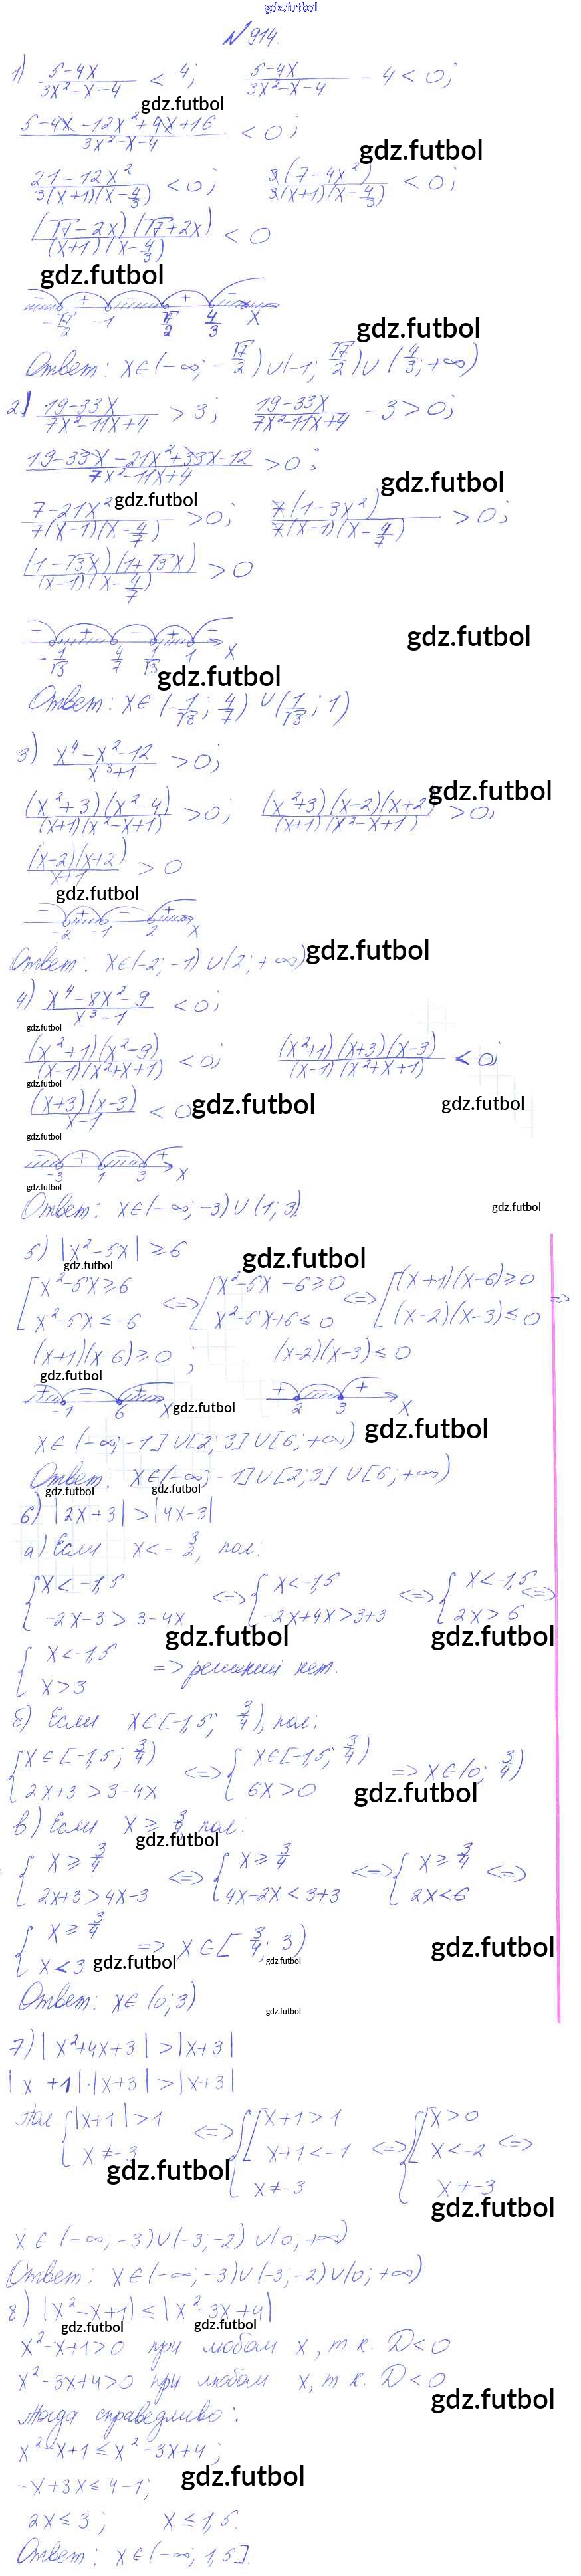 gdz.futbol
№ 914.
1) (5-4x)/(3x²-x-4) < 4; (5-4x)/(3x²-x-4) - 4 < 0;
gdz.futbol
(5-4x-12x²+4x+16)/(3x²-x-4) < 0;
gdz.futbol
(21-12x²)/(3(x+1)(x-4/3)) < 0; 3(7-4x²)/(3(x+1)(x-4/3)) < 0;
((√7-2x)(√7+2x))/((x+1)(x-4/3)) < 0
gdz.futbol
- + - + -
-√7/2 -1 √7/2 4/3 x
gdz.futbol
Ответ: x∈(-∞; -√7/2)∪(-1; √7/2)∪(4/3; +∞)
2) (19-33x)/(7x²-11x+4) > 3; (19-33x)/(7x²-11x+4) - 3 > 0;
(19-33x-21x²+33x-12)/(7x²-11x+4) > 0;
gdz.futbol
gdz.futbol
(7-21x²)/(7(x-1)(x-4/7)) > 0; 7(1-3x²)/(7(x-1)(x-4/7)) > 0;
((1-√3x)(1+√3x))/((x-1)(x-4/7)) > 0
gdz.futbol
- + - + -
-1/√3 4/7 1/√3 1 x
gdz.futbol
Ответ: x∈(-1/√3; 4/7)∪(1/√3; 1)
3) (x⁴-x²-12)/(x³+1) > 0;
gdz.futbol
((x²+3)(x²-4))/((x+1)(x²-x+1)) > 0; ((x²+3)(x-2)(x+2))/((x+1)(x²-x+1)) > 0;
((x-2)(x+2))/(x+1) > 0
gdz.futbol
- + - +
-2 -1 2 x
Ответ: x∈(-2; -1)∪(2; +∞)
gdz.futbol
4) (x⁴-8x²-9)/(x³-1) < 0;
gdz.futbol
((x²+1)(x²-9))/((x-1)(x²+x+1)) < 0; ((x²+1)(x+3)(x-3))/((x-1)(x²+x+1)) < 0;
gdz.futbol
((x+3)(x-3))/(x-1) < 0
gdz.futbol
gdz.futbol
gdz.futbol
- + - +
-3 1 3 x
gdz.futbol
Ответ: x∈(-∞; -3)∪(1; 3).
gdz.futbol
5) |x²-5x| ≥ 6
gdz.futbol
gdz.futbol
[x²-5x≥6 <=> [x²-5x-6≥0 <=> [(x+1)(x-6)≥0 =>
x²-5x≤-6 x²-5x+6≤0 (x-2)(x-3)≤0
(x+1)(x-6)≥0; (x-2)(x-3)≤0
gdz.futbol
+ - + + +
-1 6 x 2 3 x
gdz.futbol
x∈(-∞; -1]∪[2; 3]∪[6; +∞)
gdz.futbol
Ответ: x∈(-∞; -1]∪[2; 3]∪[6; +∞)
gdz.futbol
gdz.futbol
6) |2x+3| > |4x-3|
а) Если x < -3/2, пол:
{x<-1,5 <=> {x<-1,5 <=> {x<-1,5 <=>
-2x-3 > 3-4x -2x+4x>3+3 2x>6
gdz.futbol
gdz.futbol
{x<-1,5 => решений нет.
x>3
б) Если x∈[-1,5; 3/4), пол:
{x∈[-1,5; 3/4) <=> {x∈[-1,5; 3/4) => x∈(0; 3/4)
2x+3 > 3-4x 6x>0
gdz.futbol
в) Если x ≥ 3/4 пол:
gdz.futbol
{x≥3/4 <=> {x≥3/4 <=> {x≥3/4 <=>
2x+3>4x-3 4x-2x<3+3 2x<6
{x≥3/4 => x∈[3/4; 3)
x<3
gdz.futbol
gdz.futbol
gdz.futbol
Ответ: x∈(0; 3)
gdz.futbol
7) |x²+4x+3| > |x+3|
|x+1|·|x+3| > |x+3|
Пол {|x+1|>1 <=> {[x+1>1 <=> {[x>0 <=>
x≠-3 x+1<-1 x<-2
x≠-3 x≠-3
gdz.futbol
gdz.futbol
x∈(-∞; -3)∪(-3; -2)∪(0; +∞)
Ответ: x∈(-∞; -3)∪(-3; -2)∪(0; +∞)
8) |x²-x+1| ≤ |x²-3x+4|
gdz.futbol
gdz.futbol
x²-x+1>0 при любом x, т.к. D<0
x²-3x+4>0 при любом x, т.к. D<0
gdz.futbol
Тогда справедливо:
x²-x+1 ≤ x²-3x+4;
gdz.futbol
-x+3x ≤ 4-1;
2x ≤ 3; x ≤ 1,5.
Ответ: x∈(-∞; 1,5].